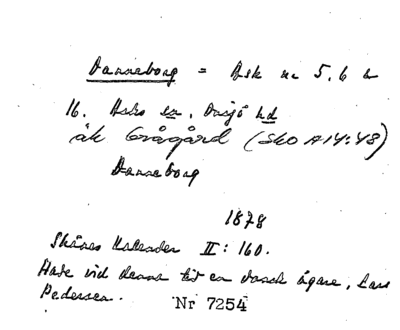 Danneborg = Ask nr 5, 6 o
16. Asks sn, Onsjö hd
äk Grågård (Sko A14:48)
Danneborg
1878
Skånes Kalender II: 160.
Hade vid denna tid en dansk ägare, Lars
Pedersen.
Nr 7254